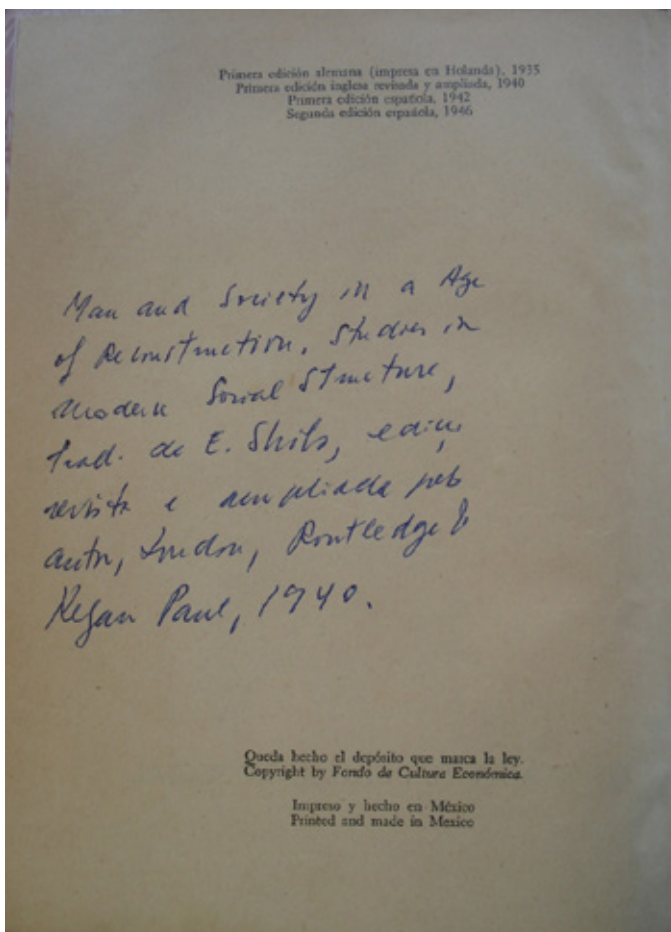 Primera edición alemana (impresa en Holanda), 1935
Primera edición inglesa revisada y ampliada, 1940
Primera edición española, 1942
Segunda edición española, 1946
Man and Society in a Age
of Reconstruction. Studies in
Modern Social Structure,
trad. de E. Shils, edição
revista e ampliada pelo
autor, London, Routledge &
Kegan Paul, 1940.
Queda hecho el depósito que marca la ley.
Copyright by Fondo de Cultura Económica.
Impreso y hecho en México
Printed and made in Mexico